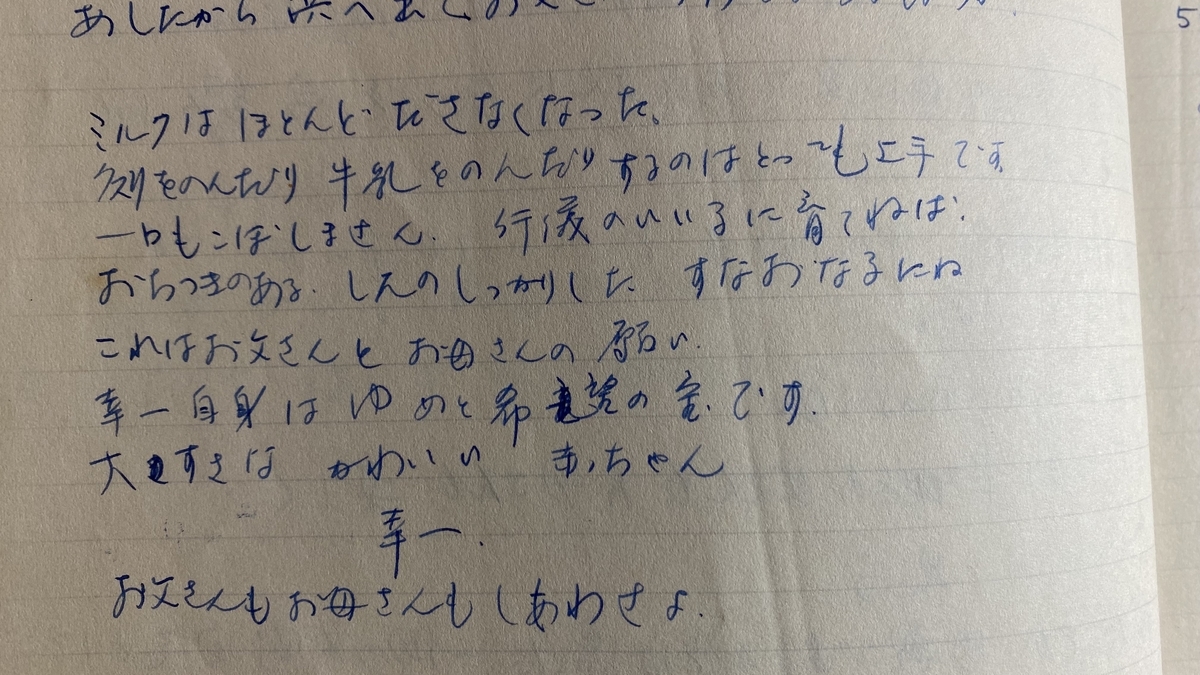 あしたから
ミルクはほとんどださなくなった。
をのんだり 牛乳をのんだりするのはとっても上手です
一口もこぼしません. 行儀のいい子に育てねば.
おちつきのある. しんのしっかりした すなおな子にね
これはお父さんとお母さんの願い.
幸一自身はゆめと希望の宝です.
大すきな かわいい 赤ちゃん
幸一.
お父さんもお母さんもしあわせよ.
5